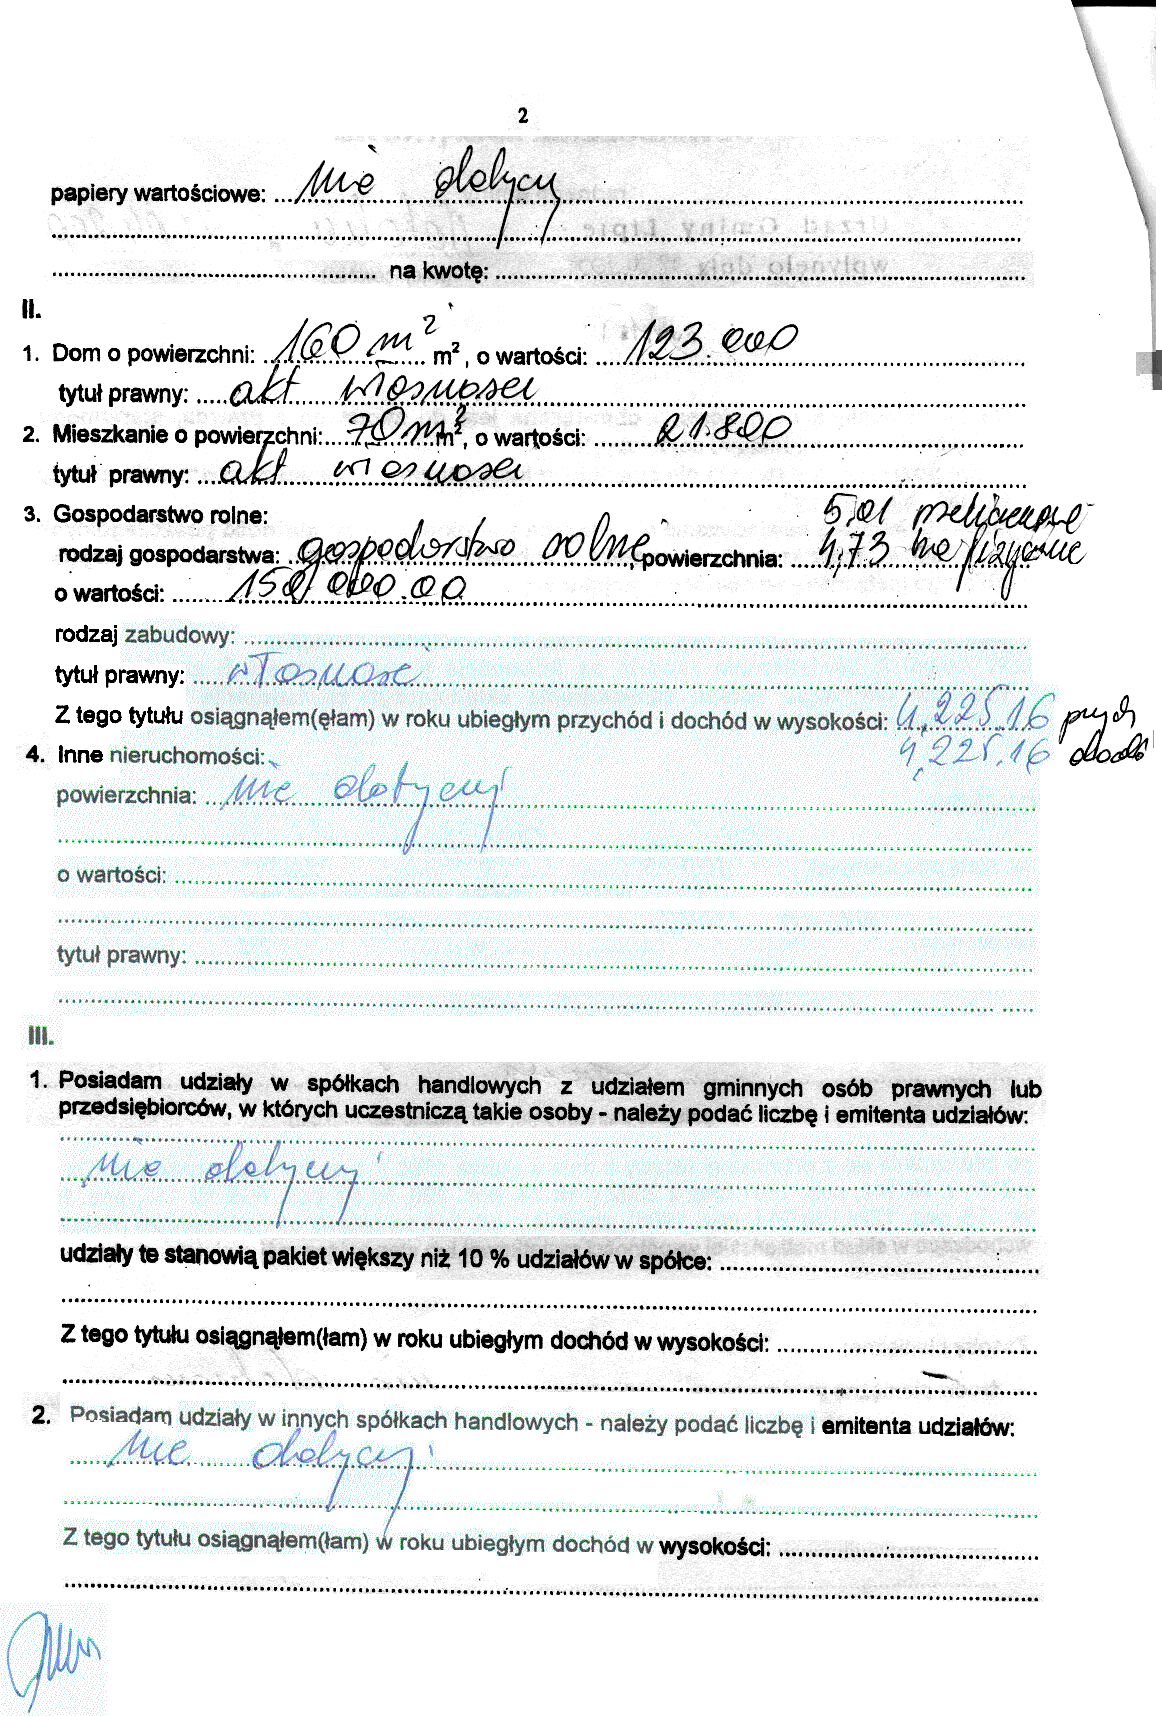 2
papiery wartościowe: nie dotyczy
na kwotę:
II.
1. Dom o powierzchni: 160 m² m², o wartości: 123.000
tytuł prawny: akt własności
2. Mieszkanie o powierzchni: 70 m² m², o wartości: 21.800
tytuł prawny: akt własności
3. Gospodarstwo rolne: 5,01 przeliczeniowe
rodzaj gospodarstwa: gospodarstwo rolne, powierzchnia: 4,73 ha fizyczne
o wartości: 150 000.00
rodzaj zabudowy:
tytuł prawny: własność
Z tego tytułu osiągnąłem(ęłam) w roku ubiegłym przychód i dochód w wysokości: 4,225.16 przych
4. Inne nieruchomości: 4,225.16 dochó
powierzchnia: nie dotyczy
o wartości:
tytuł prawny:
III.
1. Posiadam udziały w spółkach handlowych z udziałem gminnych osób prawnych lub
przedsiębiorców, w których uczestniczą takie osoby - należy podać liczbę i emitenta udziałów:
nie dotyczy
udziały te stanowią pakiet większy niż 10 % udziałów w spółce:
Z tego tytułu osiągnąłem(łam) w roku ubiegłym dochód w wysokości:
2. Posiadam udziały w innych spółkach handlowych - należy podać liczbę i emitenta udziałów:
nie dotyczy
Z tego tytułu osiągnąłem(łam) w roku ubiegłym dochód w wysokości: